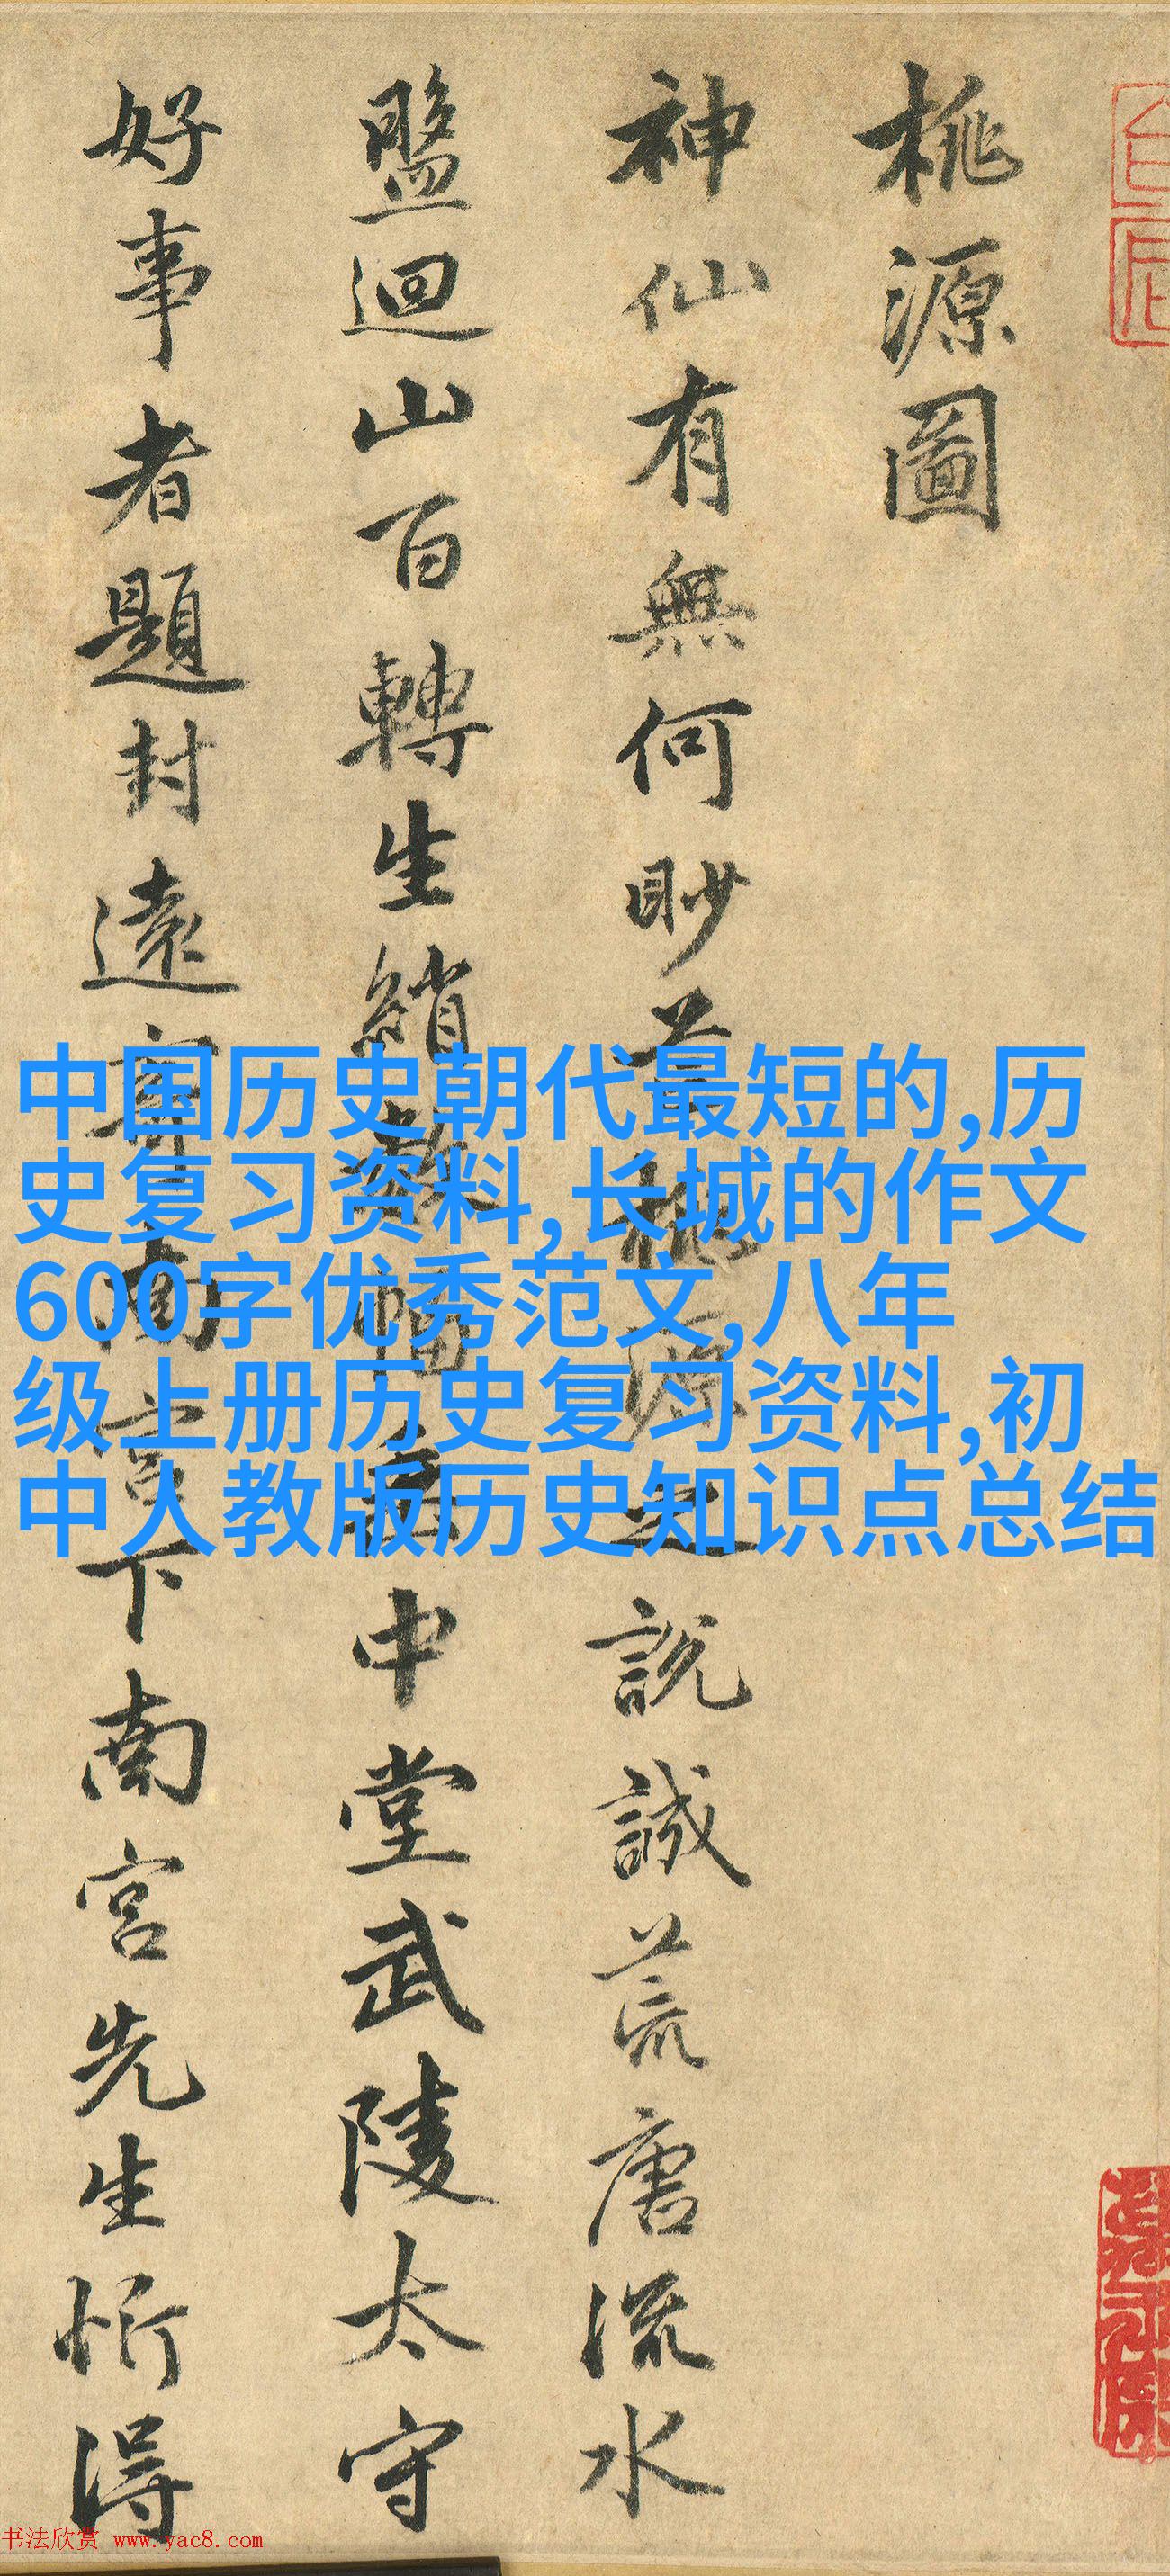 桃源圖
神仙有無何眇芒桃源之說誠荒唐流水
盤迴山百轉生綃數幅垂中堂武陵太守
好事者題封遠寄南宮下南宮先生忻得
中国历史朝代最短的,历
史复习资料,长城的作文
600字优秀范文,八年
级上册历史复习资料,初
中人教版历史知识点总结
书法欣赏 www.yac8.com